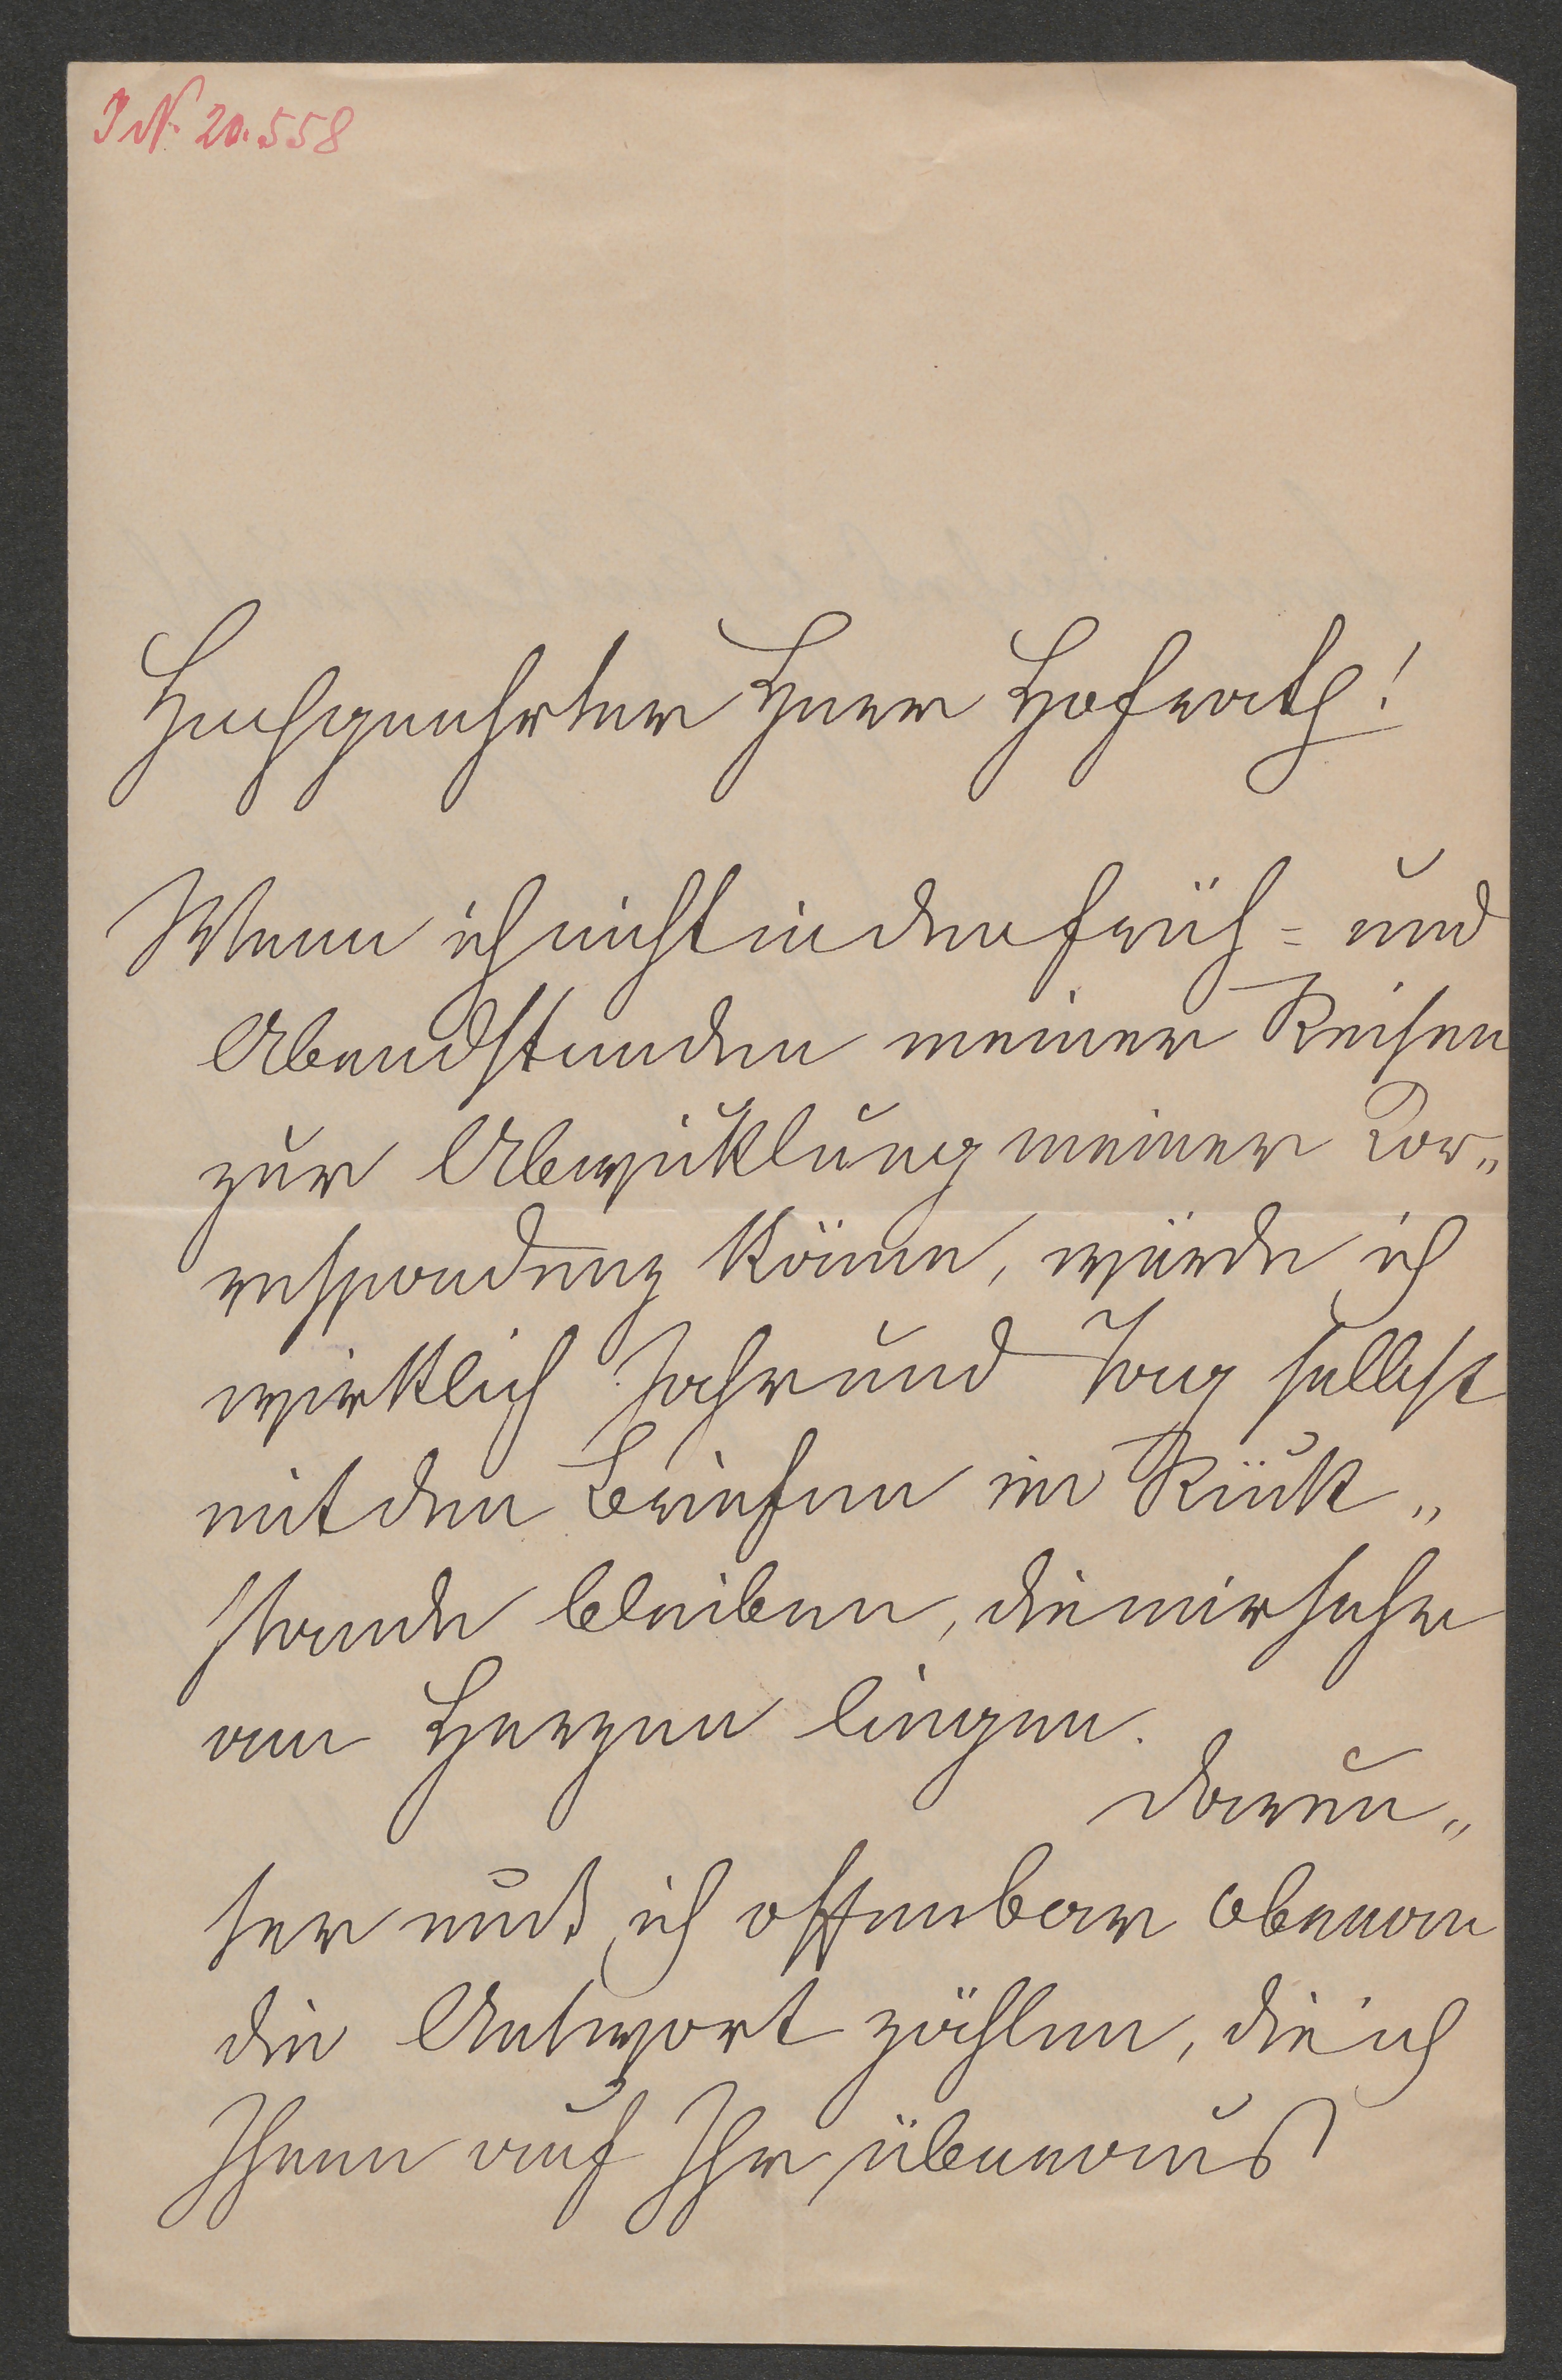 I N. 20.558
Hochgeehrter Herr Hofrath!
Wenn ich nicht in den Früh- und
Abendstunden meiner Reisen
zur Abwicklung meiner Cor„
respondenz käme, würde ich
wirklich Jahr und Tag selbst
mit den Briefen im Rück„
stande bleiben, die mir sehr
am Herzen liegen.
Darun„
ter muß ich offenbar obenan
die Antwort zählen, die ich
Ihnen auf Ihr überaus